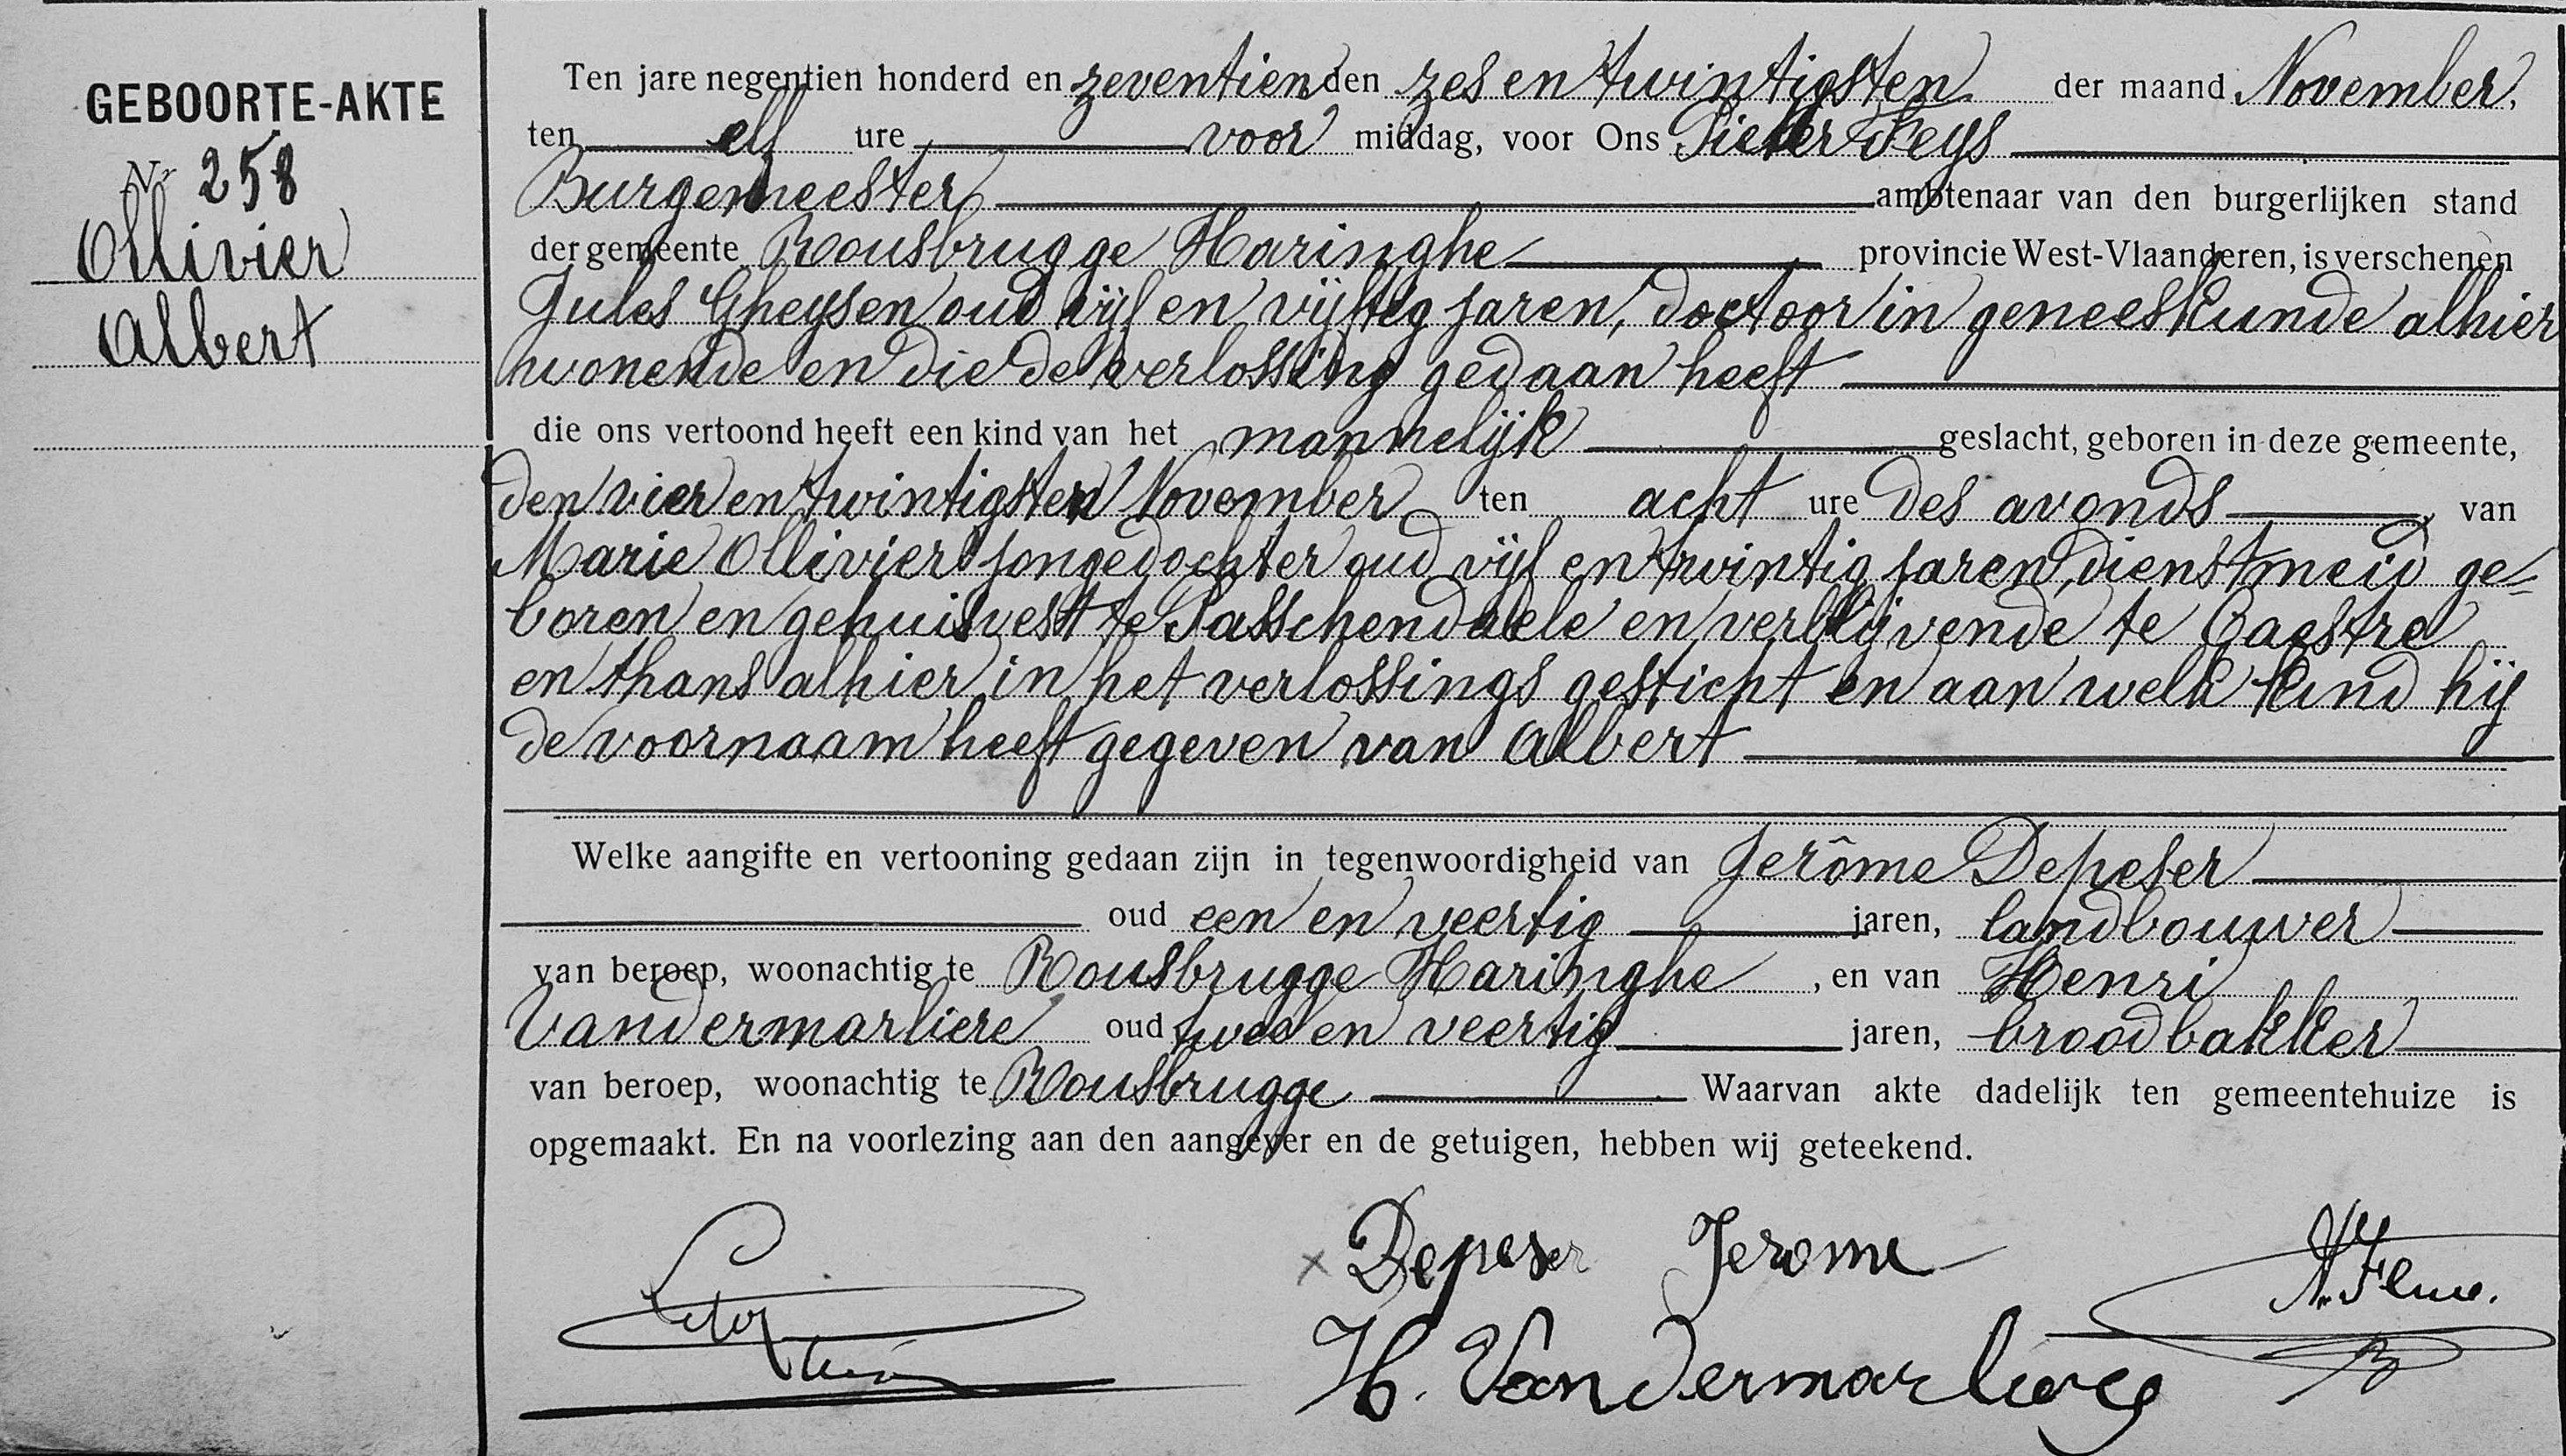 GEBOORTE-AKTE
Nr 258
Ollivier
Albert
Ten jare negentien honderd en zeventien den zes en twintigsten der maand November,
ten elf ure voor middag, voor Ons Pieter Feys
Burgemeester ambtenaar van den burgerlijken stand
der gemeente Rousbrugge Haringhe provincie West-Vlaanderen, is verschenen
Jules Gheysen oud vijf en vijftig jaren, doctoor in geneeskunde alhier
wonende en die de verlossing gedaan heeft
die ons vertoond heeft een kind van het mannelijk geslacht, geboren in deze gemeente,
den vier en twintigsten November ten acht ure des avonds, van
Marie Ollivier jongedochter oud vijf en twintig jaren, dienstmeid ge=
boren en gehuisvest te Passchendaele en verblijvende te Caestre
en thans alhier in het verlossings gesticht en aan welk kind hij
de voornaam heeft gegeven van Albert
Welke aangifte en vertooning gedaan zijn in tegenwoordigheid van Jerôme Depeser
oud een en veertig jaren, landbouwer
van beroep, woonachtig te Rousbrugge Haringhe, en van Henri
Vandermarliere oud twee en veertig jaren, broodbakker
van beroep, woonachtig te Rousbrugge. Waarvan akte dadelijk ten gemeentehuize is
opgemaakt. En na voorlezing aan den aangever en de getuigen, hebben wij geteekend.
x Depeser Jerome
H. Vandermarliere